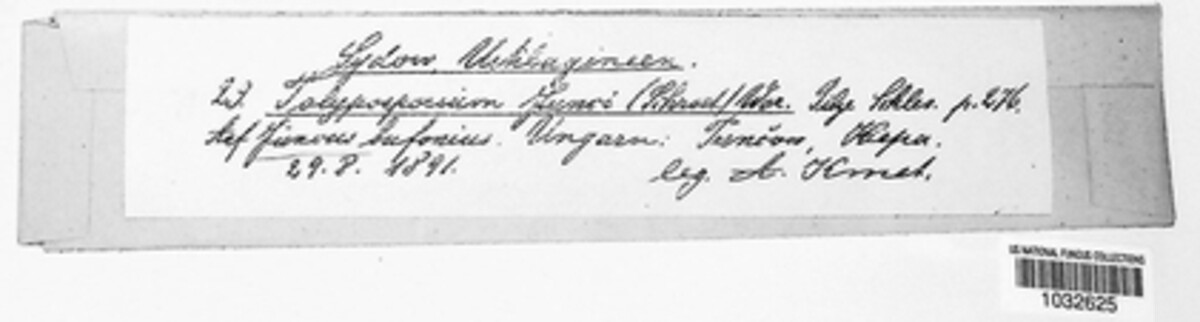 Sydow, Ustilagineen.
23. Tolyposporium Junci (Schroet) Wor. Pilze Schles. p. 276.
Auf Juncus bufonius. Ungarn: Prenčow,
29. 8. 1891. leg. A. Kmet.
US NATIONAL FUNGUS COLLECTIONS
1032625